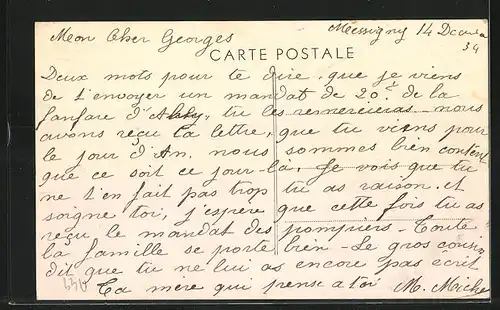 Mon Cher Georges
Messigny 14 Decembre
34
CARTE POSTALE
Deux mots pour te dire, que je viens
de t'envoyer un mandat de 20f. de la
fanfare d' tu les remercieras nous
avons reçu ta lettre, que tu viens pour
le jour d'An. nous sommes bien content
que ce soit ce jour-là, Je vois que tu
ne t'en fait pas trop tu as raison, et
soigne toi, j'espère que cette fois tu as
reçu le mandat des pompiers - Toute
la famille se porte bien - Le gros cousin
dit que tu ne lui as encore pas ecrit
Ta mère qui pense a toi M.